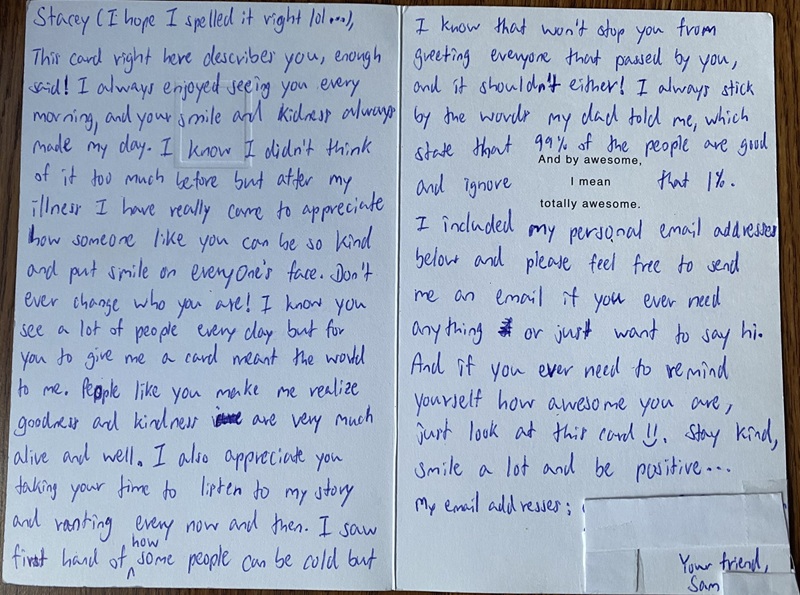 Stacey (I hope I spelled it right lol...),
This card right here describes you, enough
said! I always enjoyed seeing you every
morning, and your smile and kidness always
made my day. I know I didn't think
of it too much before but after my
illness I have really came to appreciate
how someone like you can be so kind
and put smile on everyone's face. Don't
ever change who you are! I know you
see a lot of people every day but for
you to give me a card meant the world
to me. People like you make me realize
goodness and kindness are very much
alive and well. I also appreciate you
taking your time to listen to my story
and ranting every now and then. I saw
first hand of how some people can be cold but
I know that won't stop you from
greeting everyone that passed by you,
and it shouldn't either! I always stick
by the words my dad told me, which
state that 99% of the people are good
And by awesome,
and ignore I mean that 1%.
totally awesome.
I included my personal email addresses
below and please feel free to send
me an email if you ever need
anything or just want to say hi.
And if you ever need to remind
yourself how awesome you are,
just look at this card !!. Stay kind,
smile a lot and be positive...
My email addresses:
Your friend,
Sam